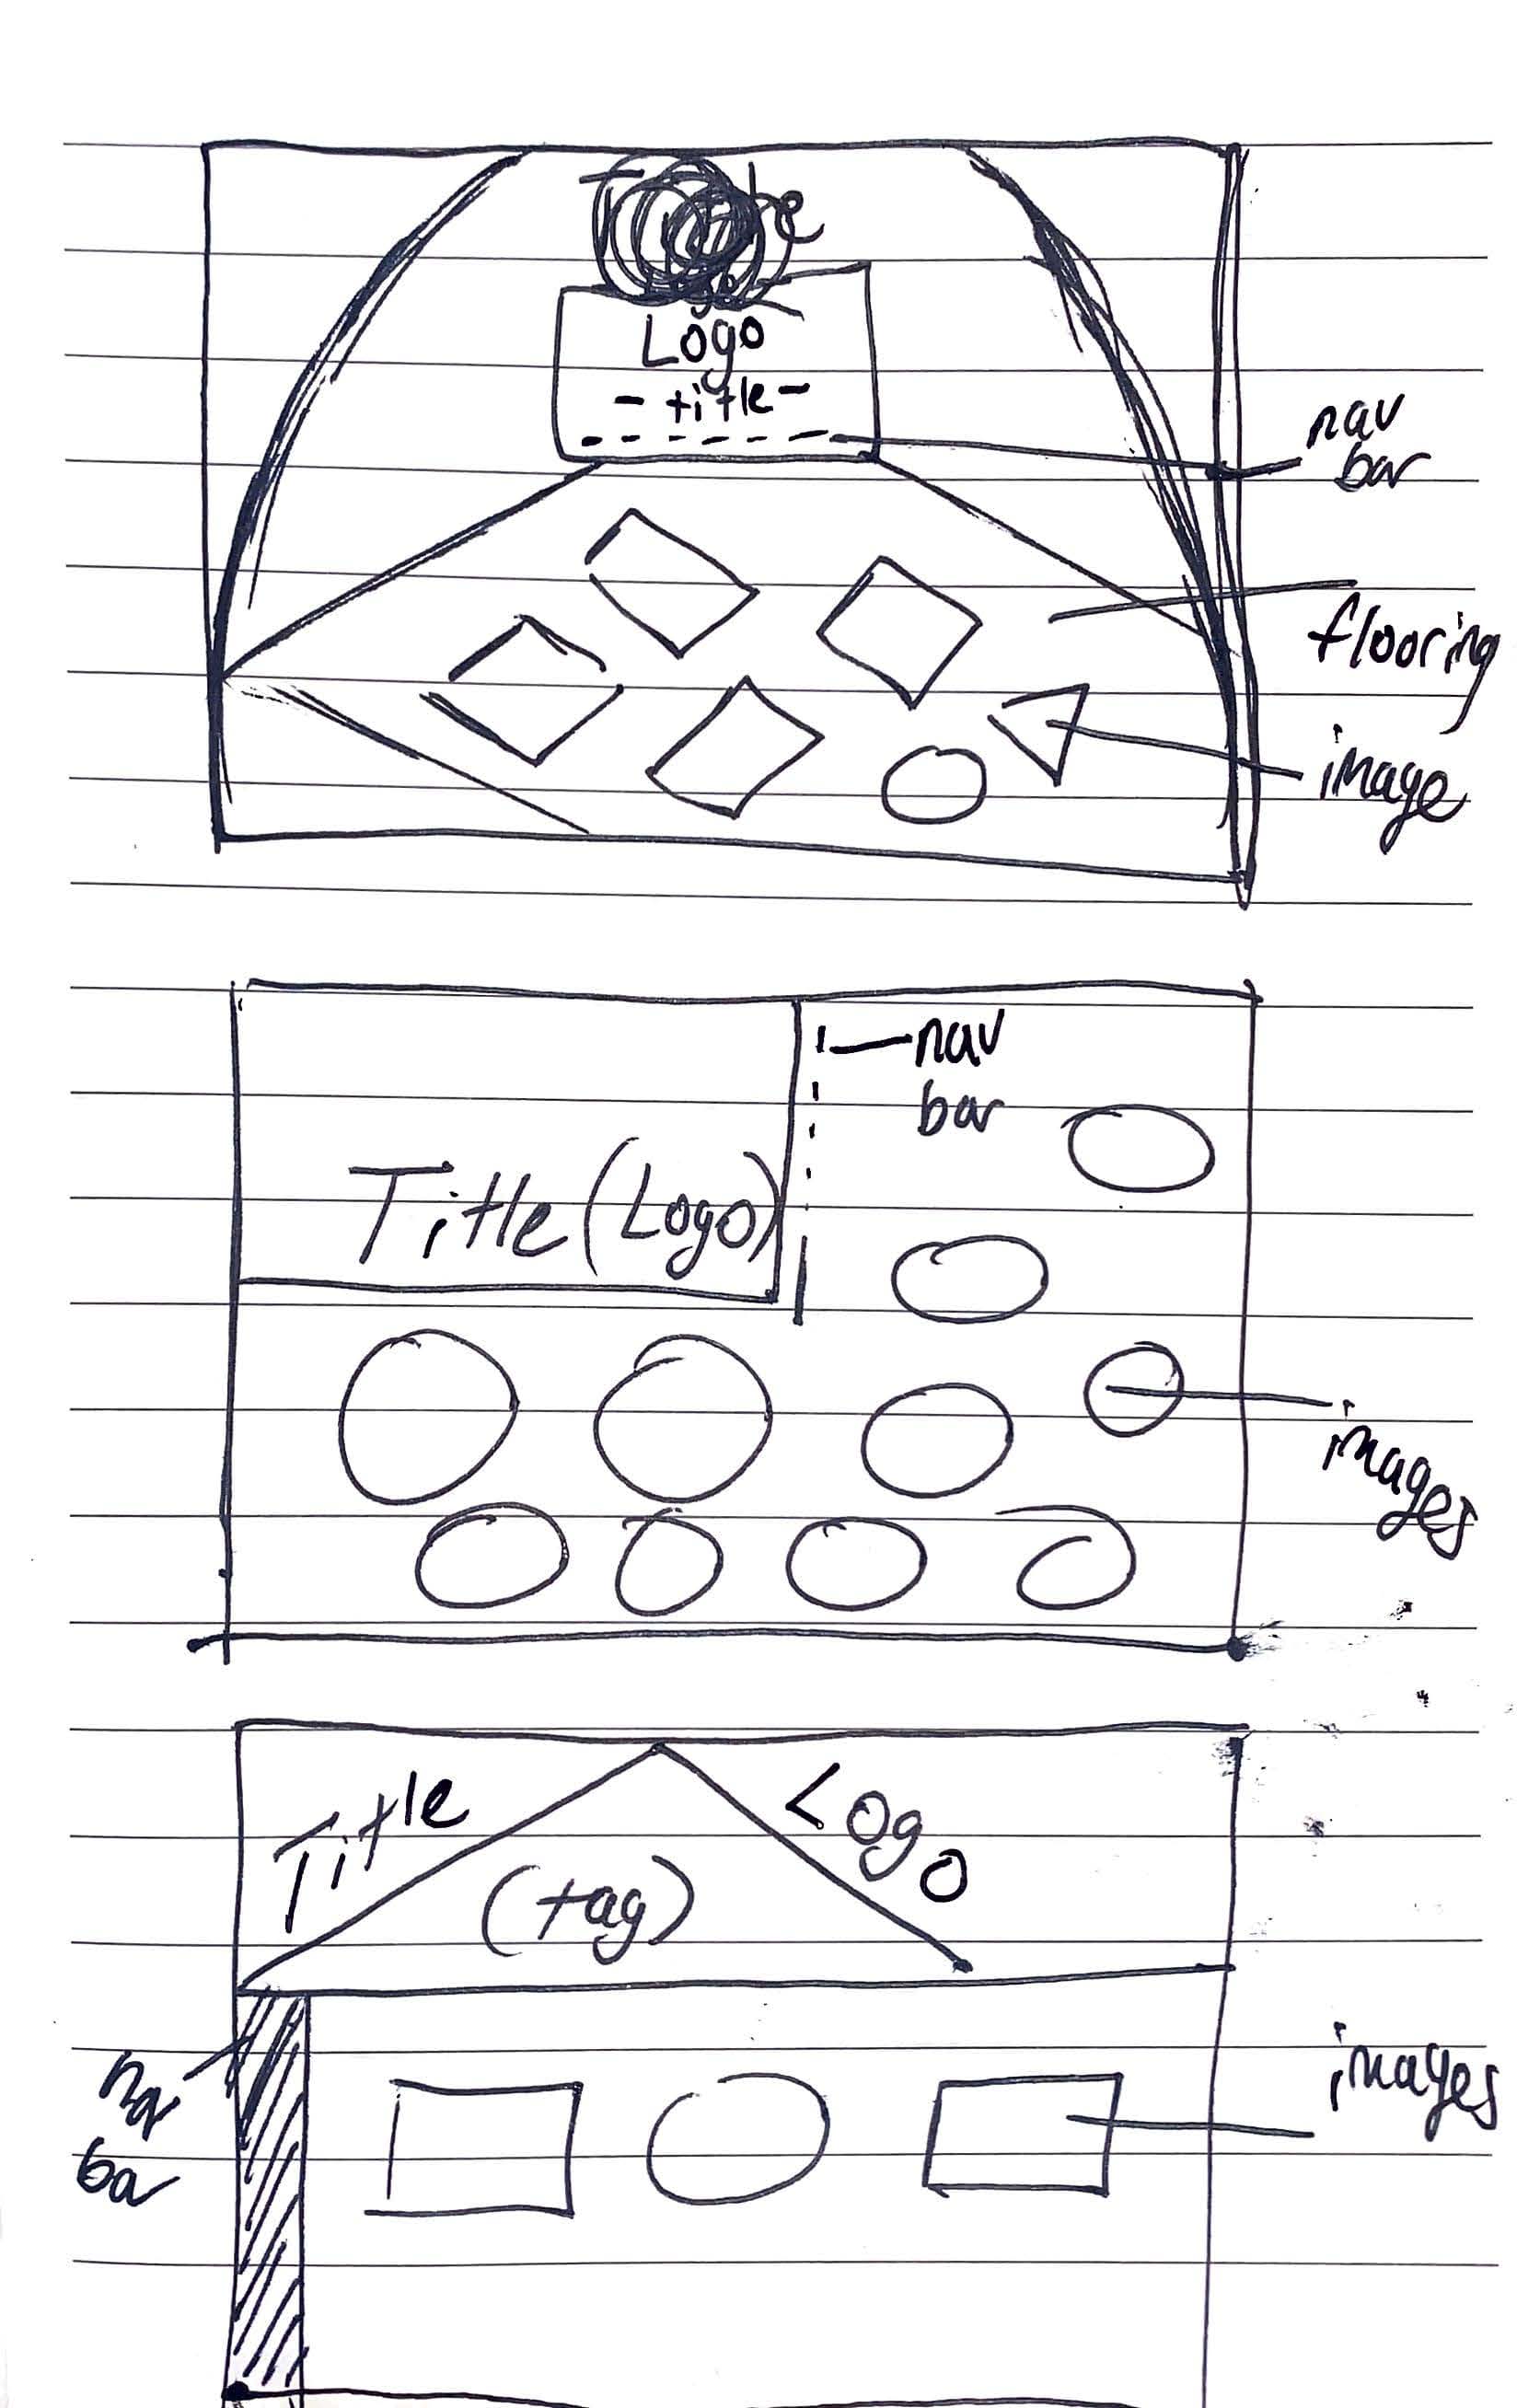 Logo
- title -
nav
bar
flooring
image
nav
bar
Title (Logo)
images
Title
Logo
(tag)
na
ba
images